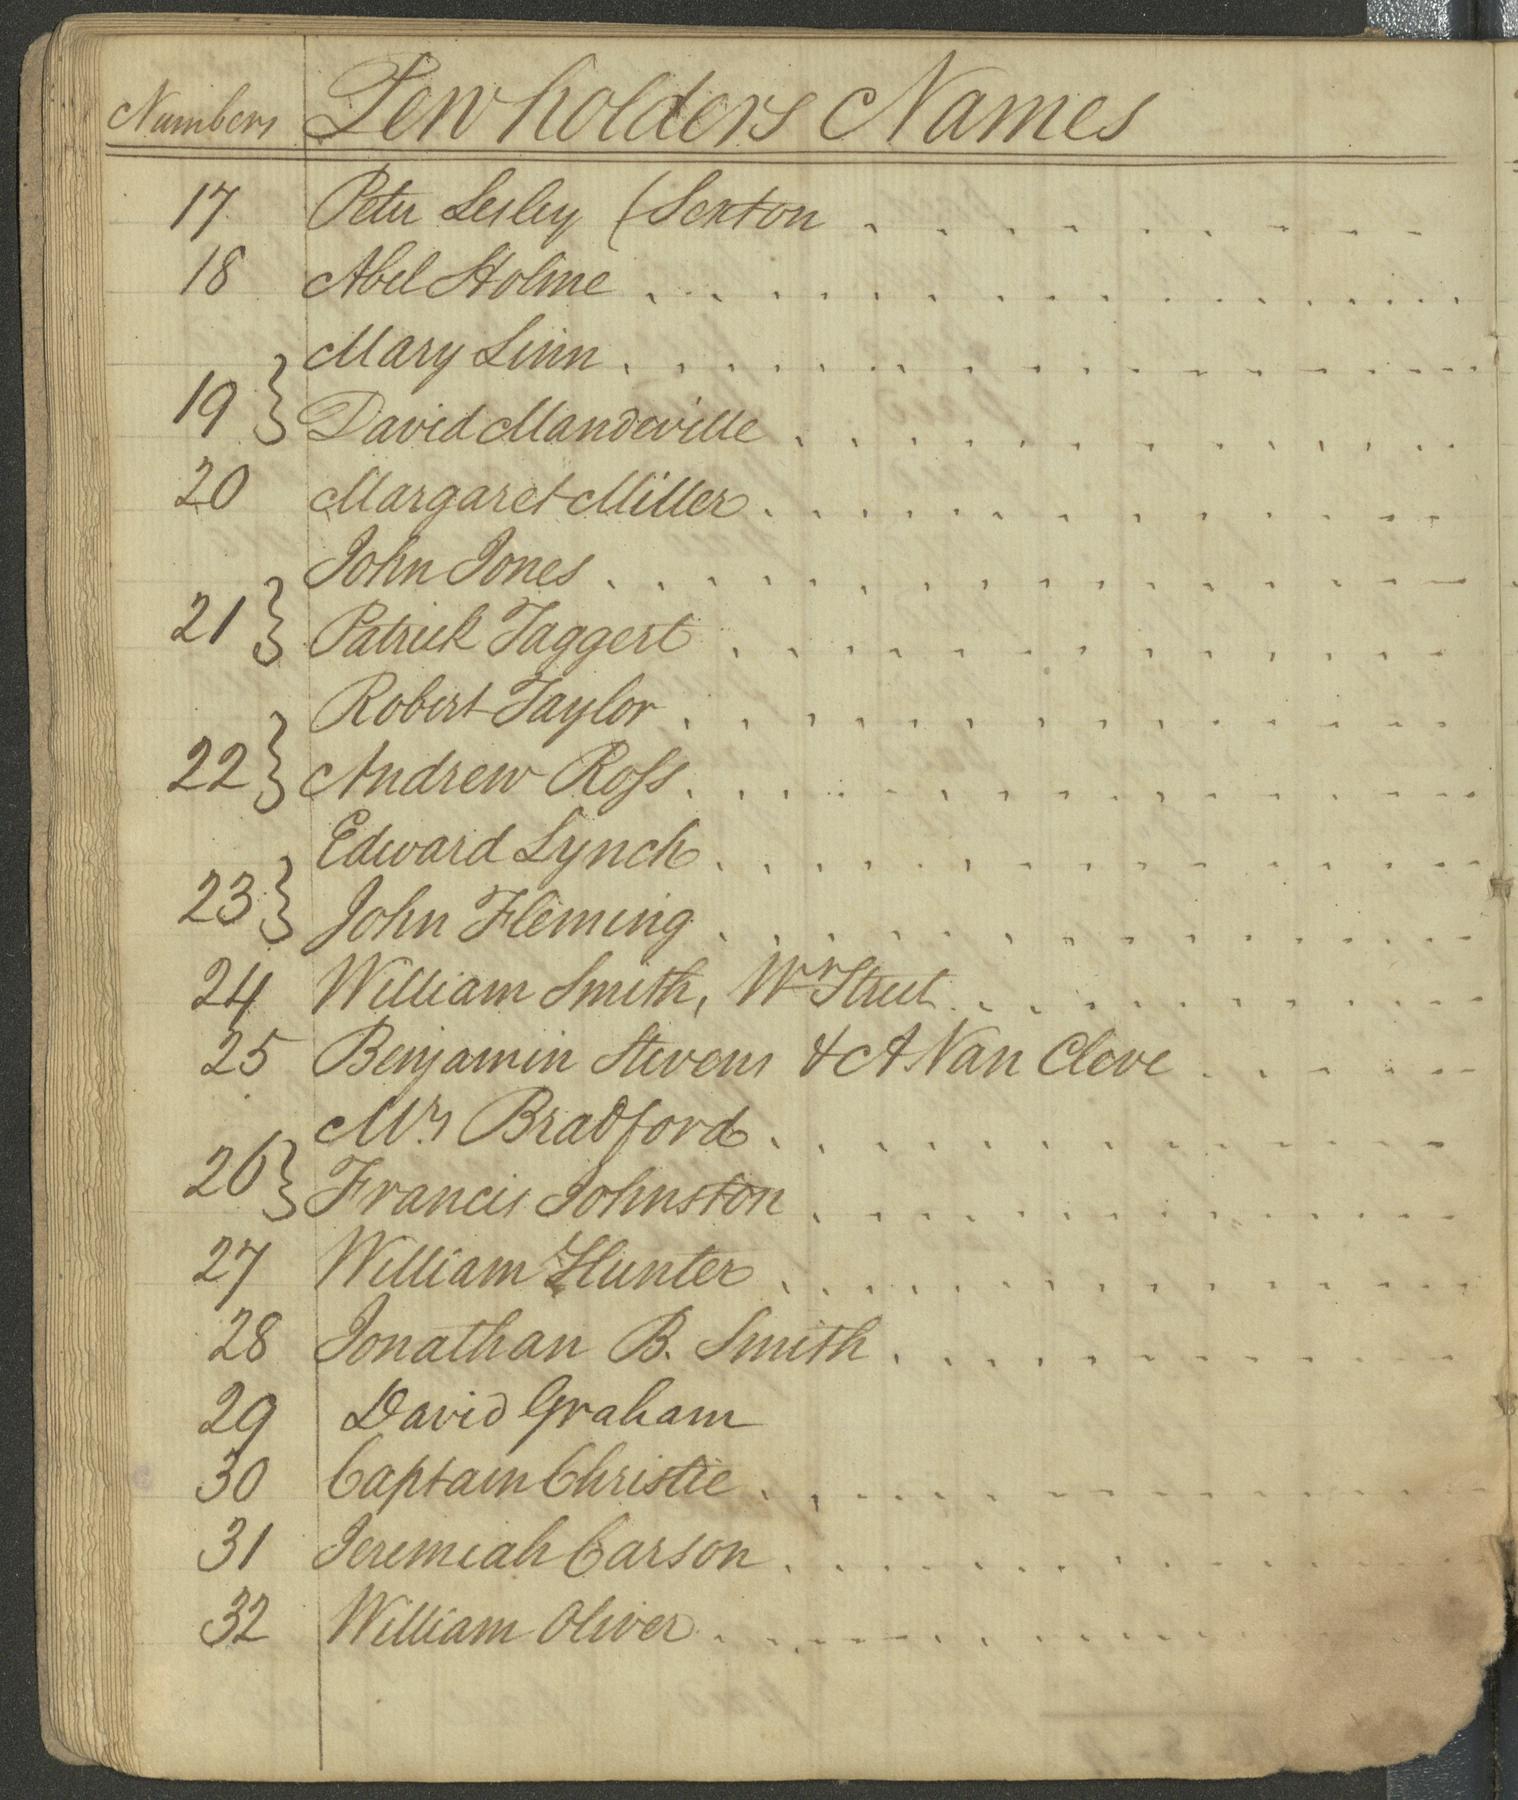 Numbers Pew holders Names
17 Peter Lesley (Sexton
18 Abel Holme
Mary Linn
19 } David Mandeville
20 Margaret Miller
John Jones
21 } Patrick Taggert
Robert Taylor
22 } Andrew Ross
Edward Lynch
23 } John Fleming
24 William Smith, Wr Street
25 Benjamin Stevens & A Van Cleve
Mrs Bradford
26 } Francis Johnston
27 William Hunter
28 Jonathan B. Smith
29 David Graham
30 Captain Christie
31 Jeremiah Carson
32 William Oliver